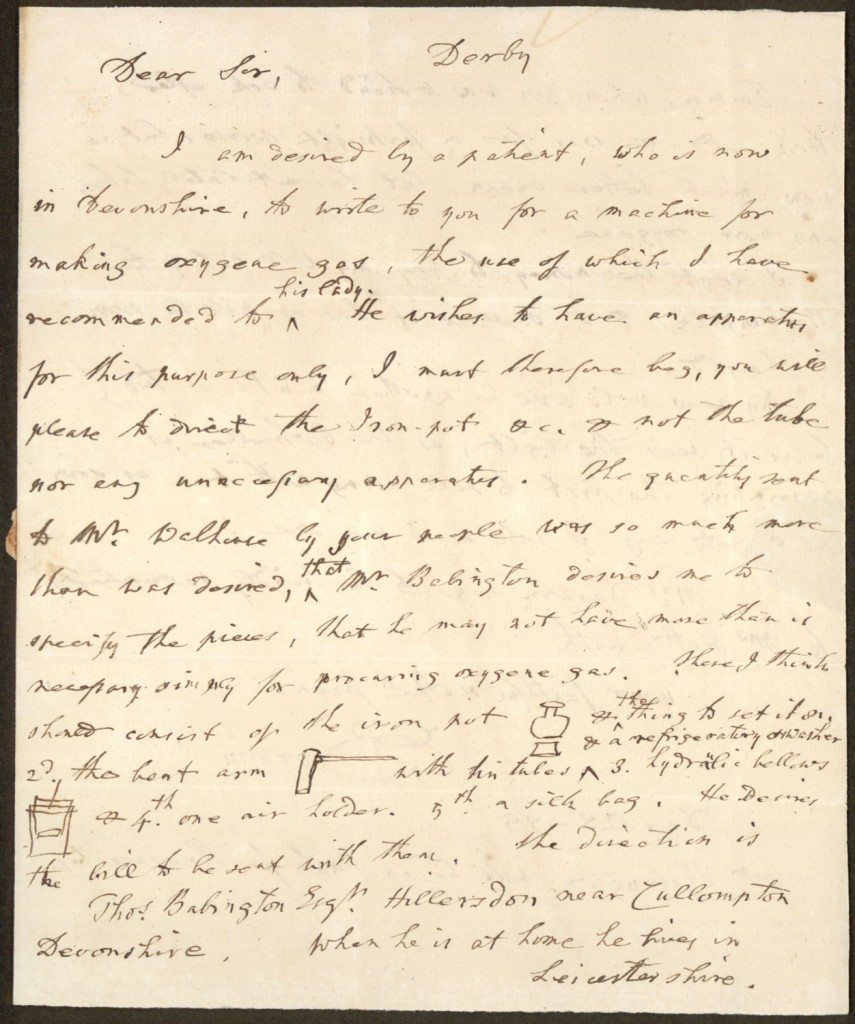 Derby
Dear Sir,
I am desired by a patient, who is now
in Devonshire, to write to you for a machine for
making oxygene gas, the use of which I have
recommended to ^ his lady. He wishes to have an apparatus
for this purpose only, I must therefore beg, you will
please to direct the Iron-pot &c. & not the tube
nor any unnecessary apparatus. The quantity sent
to Mr. Walhouse by your people was so much more
than was desired, ^ that Mr Babington desires me to
specify the pieces, that he may not have more than is
necessary simply for procuring oxygene gas. These I think
should consist of the iron pot & ^ the thing to set it on.
2d. the bent arm with tin tubes ^ & a refrigeratory & washer 3. hydraulic bellows
& 4th. one air holder. 5th a silk bag. He Desires
the bill to be sent with them. The direction is
Thos. Babington Esqr. Hillersdon near Cullompton
Devonshire. When he is at home he lives in
Leicestershire.